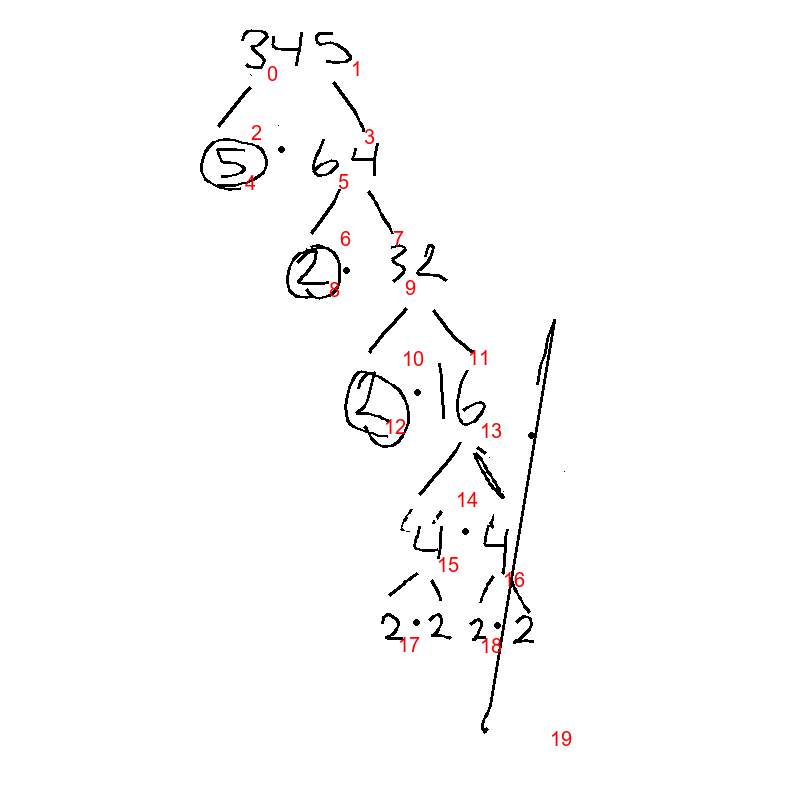 345
0 1
2 3
5 · 64
4 5
6 7
2 · 32
8 9
10 11
2 · 16
12 13
14
4 · 4
15 16
2 · 2 2 · 2
17 18
19